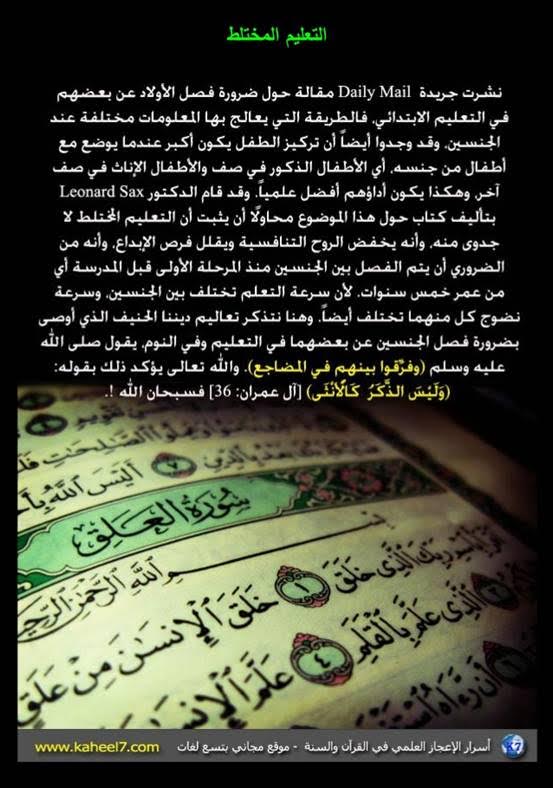 التعليم المختلط
نشرت جريدة Daily Mail مقالة حول ضرورة فصل الأولاد عن بعضهم
في التعليم الابتدائي، فالطريقة التي يعالج بها المعلومات مختلفة عند
الجنسين، وقد وجدوا أيضاً أن تركيز الطفل يكون أكبر عندما يوضع مع
أطفال من جنسه، أي الأطفال الذكور في صف والأطفال الإناث في صف
آخر، وهكذا يكون أداؤهم أفضل علمياً. وقد قام الدكتور Leonard Sax
بتأليف كتاب حول هذا الموضوع محاولًا أن يثبت أن التعليم المختلط لا
جدوى منه، وأنه يخفض الروح التنافسية ويقلل فرص الإبداع، وأنه من
الضروري أن يتم الفصل بين الجنسين منذ المرحلة الأولى قبل المدرسة أي
من عمر خمس سنوات، لأن سرعة التعلم تختلف بين الجنسين، وسرعة
نضوج كل منهما تختلف أيضاً. وهنا نتذكر تعاليم ديننا الحنيف الذي أوصى
بضرورة فصل الجنسين عن بعضهما في التعليم وفي النوم، يقول صلى الله
عليه وسلم (وفرِّقوا بينهم في المضاجع). والله تعالى يؤكد ذلك بقوله:
(وَلَيْسَ الذَّكَرُ كَالْأُنْثَى) [آل عمران: 36] فسبحان الله !.
أَلَيْسَ اللَّهُ ٧
سُورَةُ الْعَلَقِ
اللَّهِ الرَّحْمَٰنِ الرَّحِيمِ
الَّذِي خَلَقَ ١ خَلَقَ الْإِنسَانَ مِنْ عَلَقٍ
الَّذِي عَلَّمَ بِالْقَلَمِ ٤ عَلَّمَ الْإِنسَانَ
أَن رَّآهُ
أسرار الإعجاز العلمي في القرآن والسنة - موقع مجاني بتسع لغات www.kaheel7.com